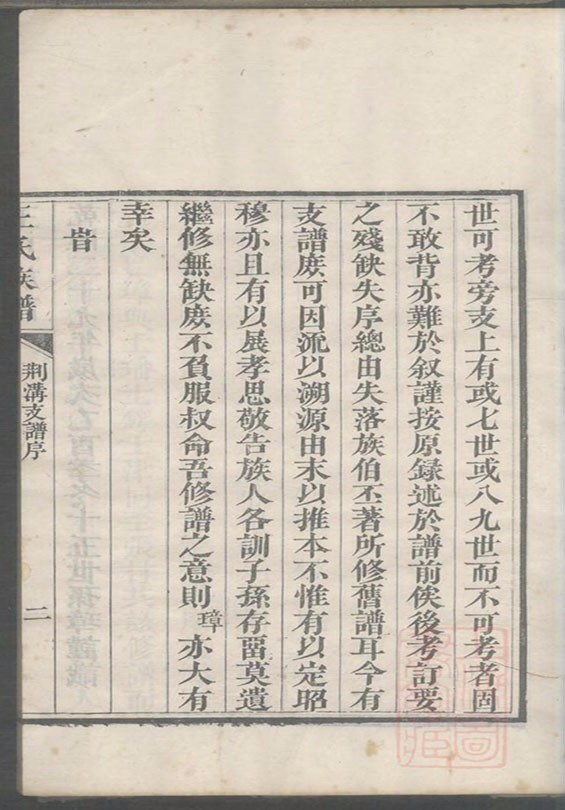 世可考旁支上有或七世或八九世而不可考者固
不敢背亦難於叙謹按原錄述於譜前俟後考訂要
之殘缺失序總由失落族伯丕著所修舊譜耳今有
支譜庶可因流以溯源由末以推本不惟有以定昭
穆亦且有以展孝思敬告族人各訓子孫存畱莫遺
繼修無缺庶不負服叔命吾修譜之意則璋亦大有
幸矣
旹
王氏族譜
荆溝支譜序
二